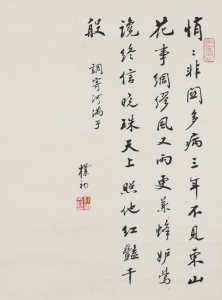 悄〻非関多病三年不見東山
花事綢繆風又雨更兼蜂妒鶯
讒終信曉珠天上照他紅豔千
般
調寄河滿子
樸初